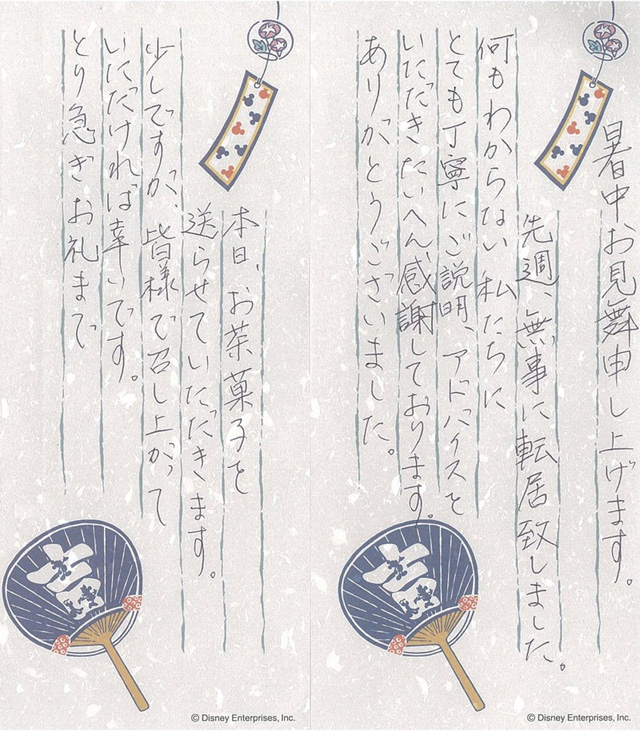 暑中お見舞申し上げます。
先週、無事に転居致しました。
何もわからない私たちに
とても丁寧にご説明、アドバイスを
いただきたいへん感謝しております。
ありがとうございました。
© Disney Enterprises, Inc.
本日、お茶菓子を
送らせていただきます。
少しですが、皆様で召し上がって
いただければ幸いです。
とり急ぎお礼まで
© Disney Enterprises, Inc.